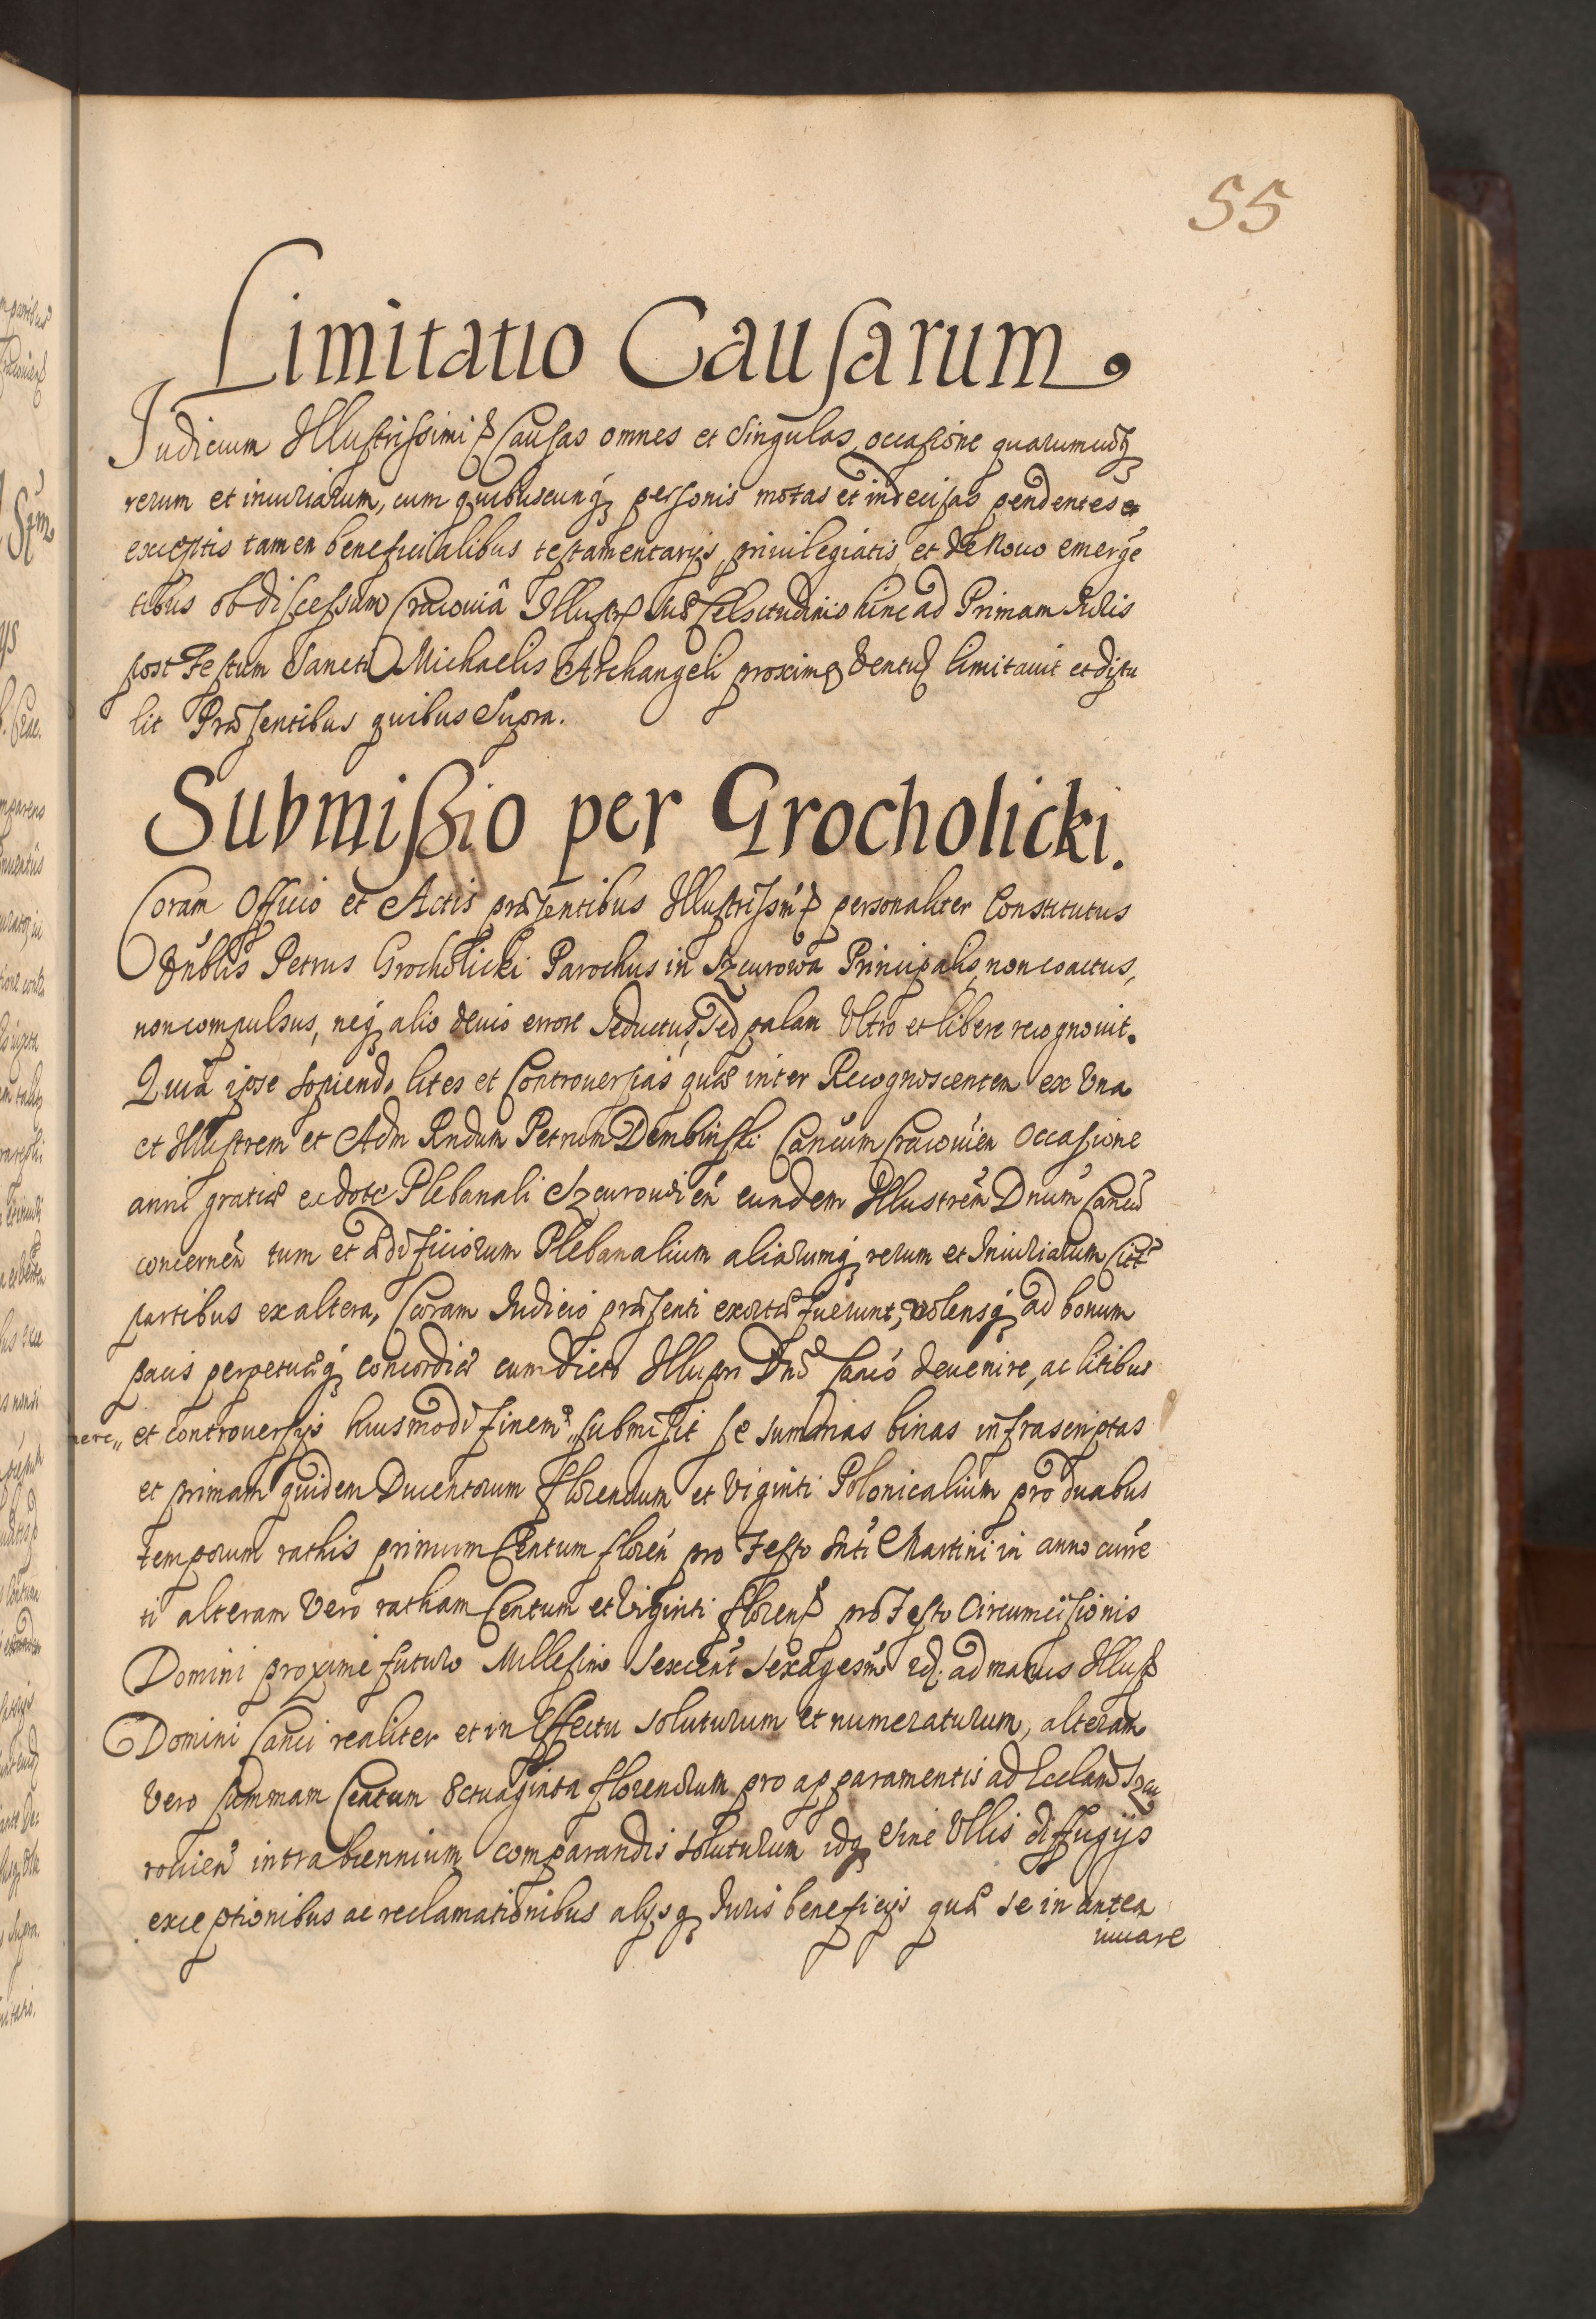 55
Limitatio Causarum
Judicium Illustrissimi Causas omnes et singulas occasione quarumcunq;
rerum et iniuriarum, cum quibuscunq; personis motas et indecisas pendentes
exceptis tamen beneficialibus testamentarijs, privilegiatis, et de Nouo emergē
tibus ob discessum Cracouiâ Illustr Suæ Celsitudinis hinc ad Primam Iuris
post Festum Sancti Michaelis Archangeli proxime Ventu limitauit et distu
lit Præsentibus quibus Supra.
Submissio per Grocholicki.
Coram Officio et Actis præsentibus Illustrissmi personaliter Constitutus
Petrus Grocholicki Parochus in Szcurowa Principalis, non coactus,
non compulsus, neq; alio deuio errore seductus, sed palam Vltro et libere recognouit.
Quia ipse sopiendo lites et Controuersias quæ inter Recognoscentem ex Vna
et Illustrem et Adm Rndum Petrum Dembinski Cancum Cracouien Occasione
anni gratiæ ec dote Plebanali Szcurouien eundem Illustrem Dnum Cancu
concernen tum et ædificiorum Plebanalium aliarumq; rerum et Iniuriarum
partibus ex altera, Coram Iudicio præsenti exortæ fuerunt, volensq; ad bonum
pacis perpetuæq; concordiæ cum dicto Illustri Dno Canco deuenire, ac litibus
et controuersijs huiusmodi finem submisit se summas binas infrascriptas
et primam quidem Ducentorum florenorum et Viginti Polonicalium pro duabus
temporum rathis primum Centum floren pro Festo Snti Martini in anno curre
ti alteram Vero ratham Centum et Viginti floren pro Festo Circumcisionis
Domini proxime futuro Millesimo Sexcent Sexagesim ad manus Illus
Domini Canci realiter et in Effectu soluturum et numeraturum, alteram
Vero summam Centum Octuaginta florenorum pro apparamentis ad Ecclam Szcu
rouien intra biennium comparandis soluturum idq; sine Vllis diffugijs
exceptionibus ac reclamationibus alijsq; Iuris beneficijs quæ se in antea
iuuare